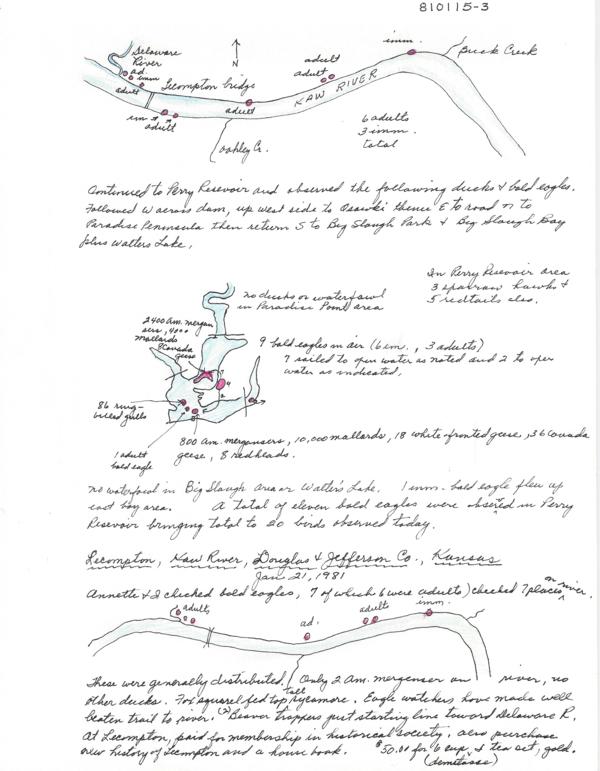 810115-3
Delaware
River
N
imm.
Buck Creek
ad.
imm
adult
adult
adult
Lecompton bridge
KAW RIVER
adult
im
adult
6 adults
3 imm.
total
Oakley Cr.
Continued to Perry Resevoir and observed the following ducks & bald eagles.
Followed W across dam, up west side to Osawki thence E to road N to
Paradise Peninsula then return S to Big Slough Park & Big Slough Bay
plus Walters Lake.
In Perry Resevoir area
3 sparrow hawks &
5 redtails also.
no ducks or waterfowl
in Paradise Point area
2400 Am. mergan
sers, 4000
mallards
9 Canada
geese
9 bald eagles in air (6 im., 3 adults)
7 sailed to open water as noted and 2 to open
water as indicated.
86 ring-
billed gulls
1 adult
bald eagle
800 Am. mergansers, 10,000 mallards, 18 white-fronted geese, 36 Canada
geese, 8 redheads.
no waterfowl in Big Slough Area or Walter's Lake. 1 imm. bald eagle flew up
east bay area. A total of eleven bald eagles were observed in Perry
Resevoir bringing total to 20 birds observed today.
Lecompton, Kaw River, Douglas & Jefferson Co., Kansas
Jan 21, 1981
Annette & I checked bald eagles, 7 of which 6 were adults) checked 7 places on river.
adults
ad.
adults
imm.
These were generally distributed. Only 2 Am. merganser on river, no
other ducks. Fox squirel fed top tall sycamore. Eagle watchers have made well
beaten trail to river. (2) Beaver trappers just starting line toward Delaware R.
At Lecompton, paid for membership in historical society, also purchase
new history of Lecompton and a house book. $50.01 for 6 cup & tea set, gold.
(demitasse)